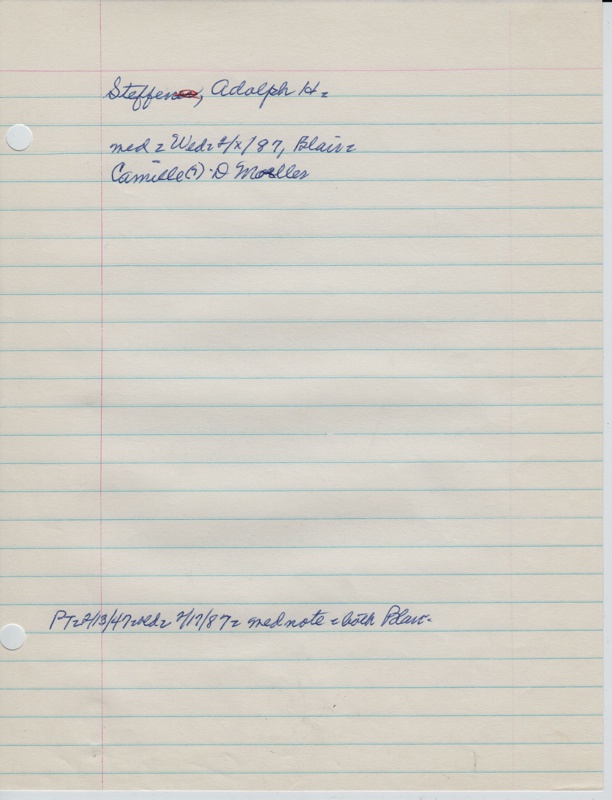 Steffen, Adolph H=
med = Wed= 2/x/87, Blair=
Camille(?) D Moelles
PT=2/13/47=ed= 2/17/87= med note = both Blair=